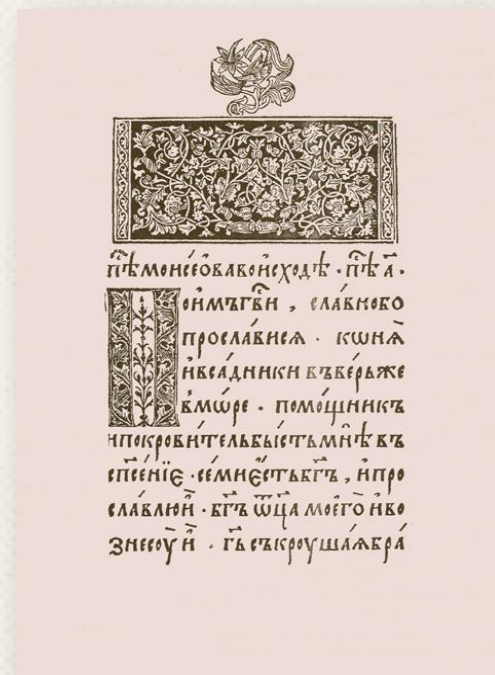 пⷭ҇ѣ моисеова во исходѣ · пⷭ҇ѣ а҃ ·
Поимъ гв҃и , славнобо
прослависѧ · кѡнѧ̀
и̓вса́дники въве́рьже
в̓мѡ́ре · помо́щникъ
и̓покрови́тель бы́сть мнѣ̀ въ
сп҃се́нїе · се́мнⷤ є́сть бг҃ъ , и̓про
славлю̀и̓ · бг҃ъ ѿц҃а моего̀ и̓во
знесоу̀ и̓ · гь҃ съкроуша́ѧ бра́